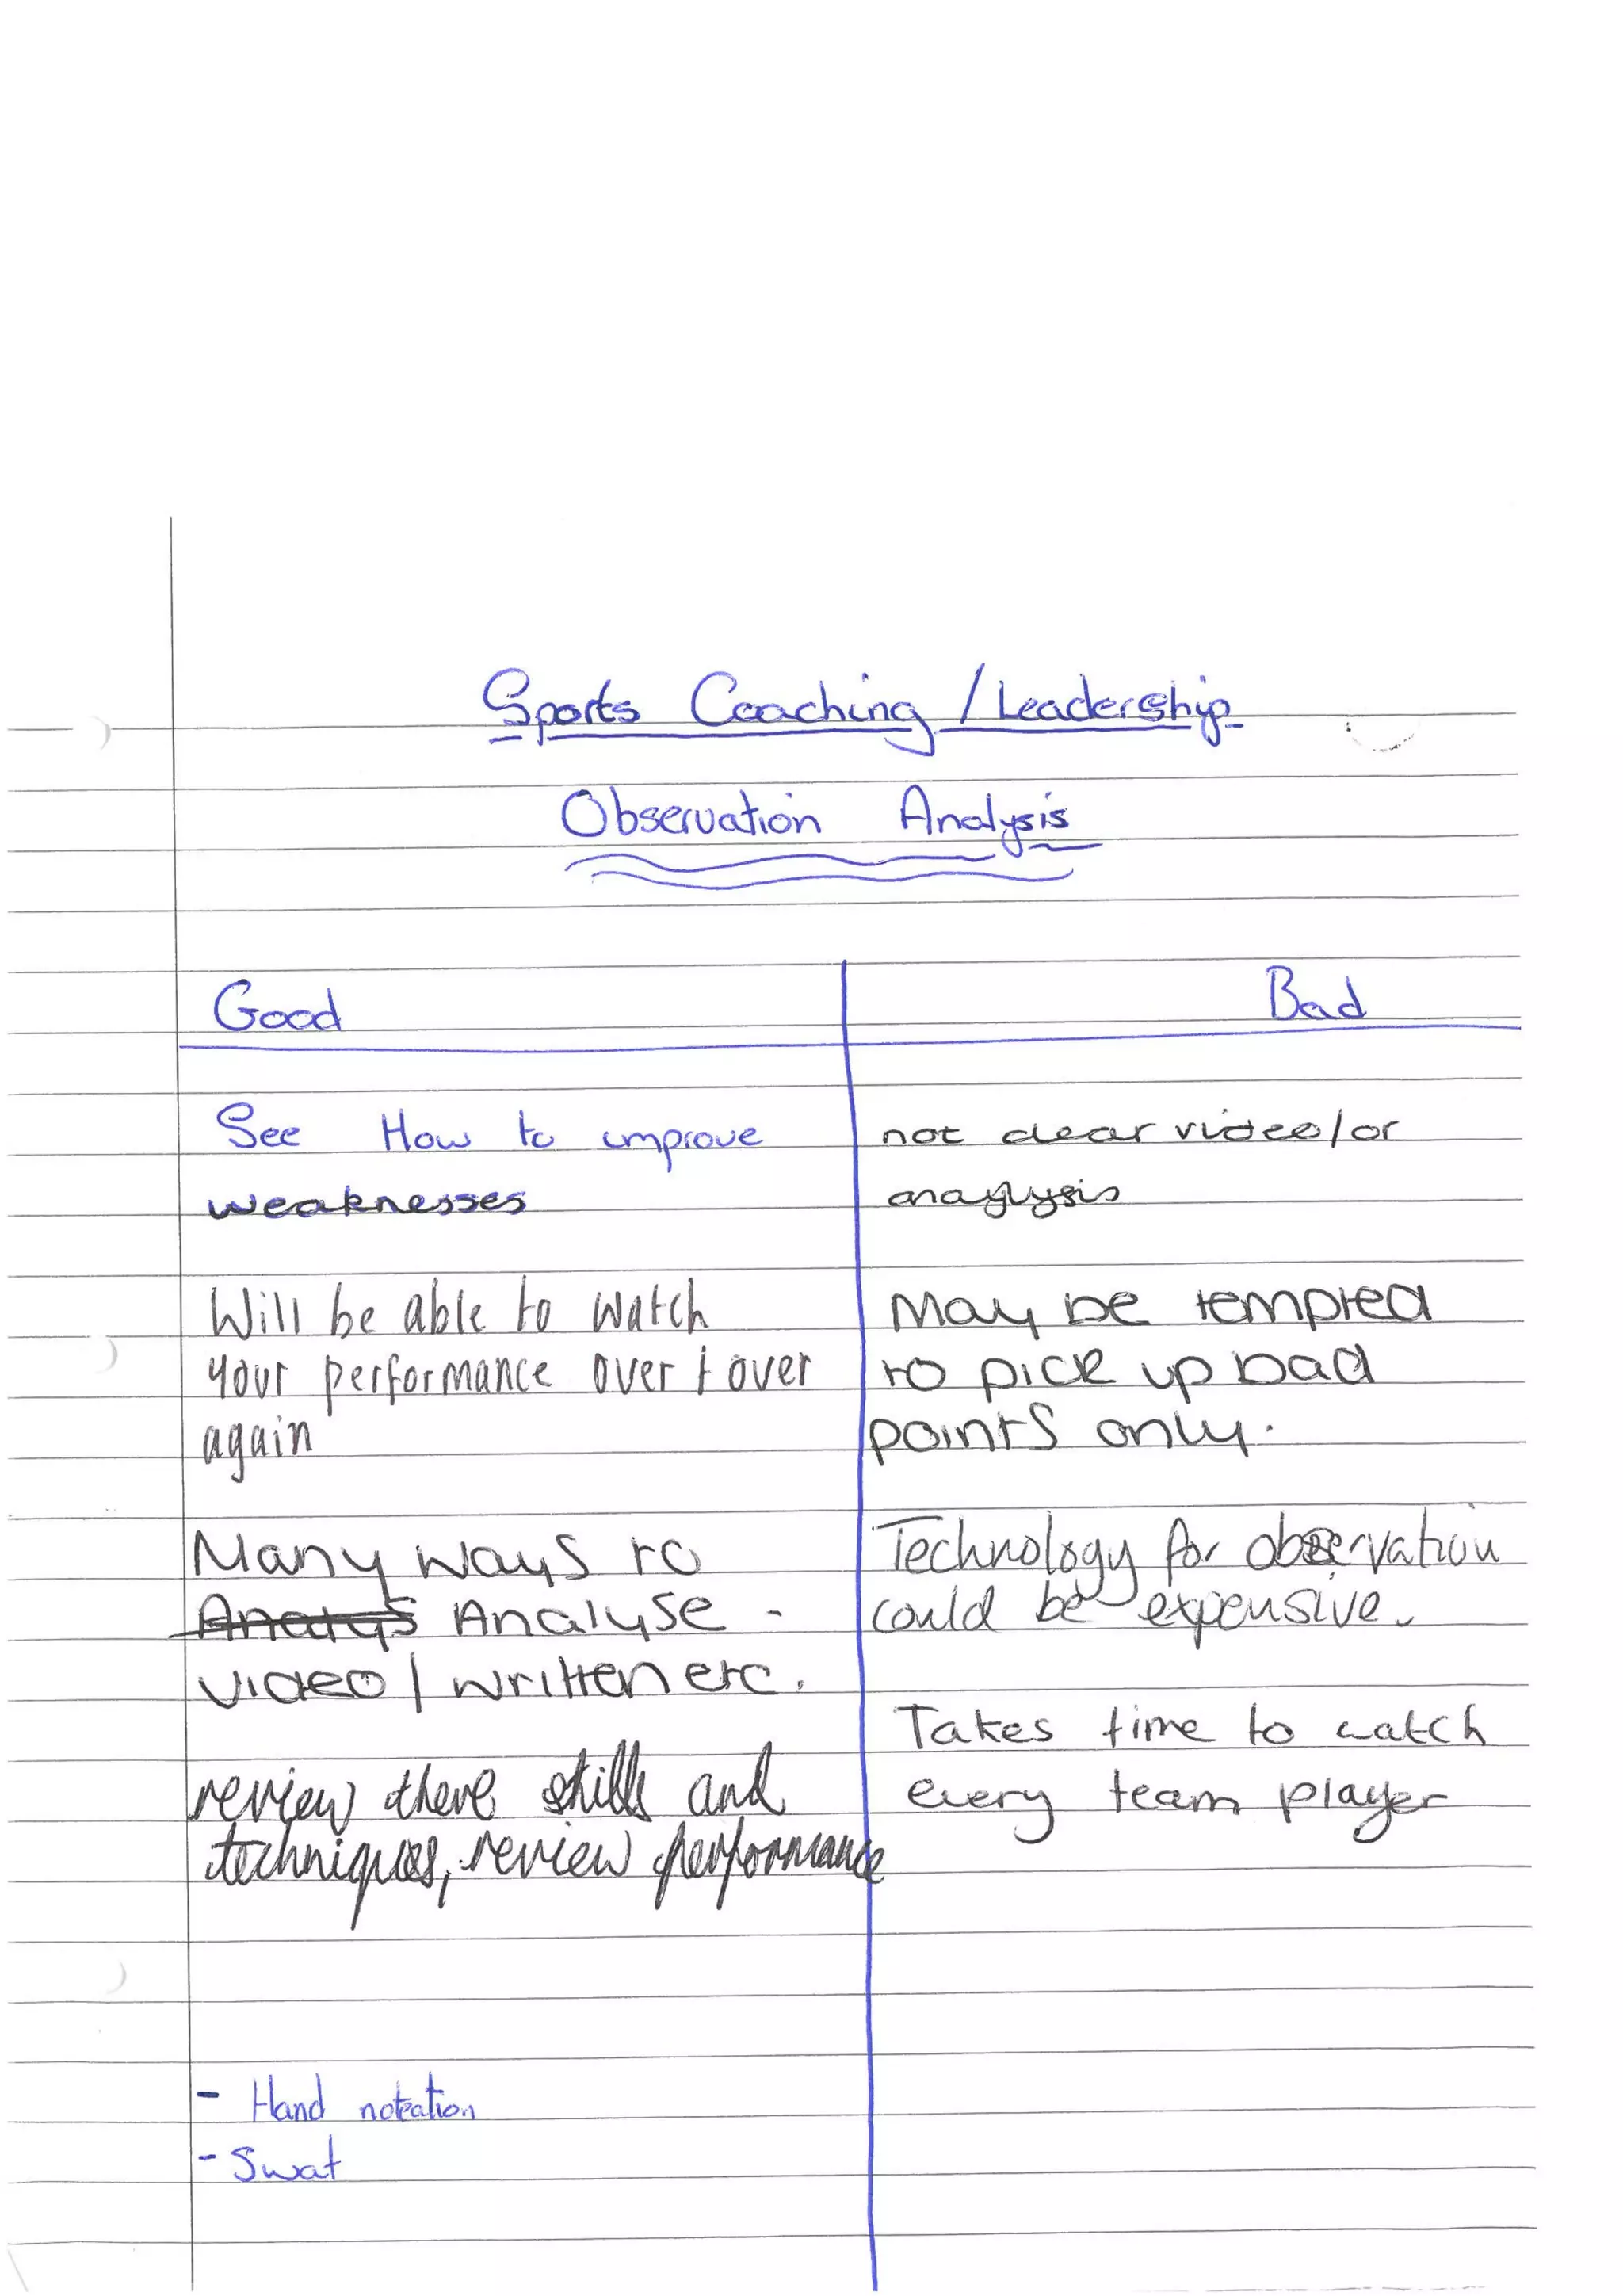 Sports Coaching / Leadership
Observation Analysis
Good
Bad
See How to improve
weaknesses
Will be able to watch
your performance over + over
again
Many ways to
Analys Analyse -
video / written etc.
review there skills and
techniques, review performance
- Hand notation
- Swat
not clear video/or
anaylysis
May be tempted
to pick up bad
points only.
Technology for observation
could be expensive.
Takes time to watch
every team player